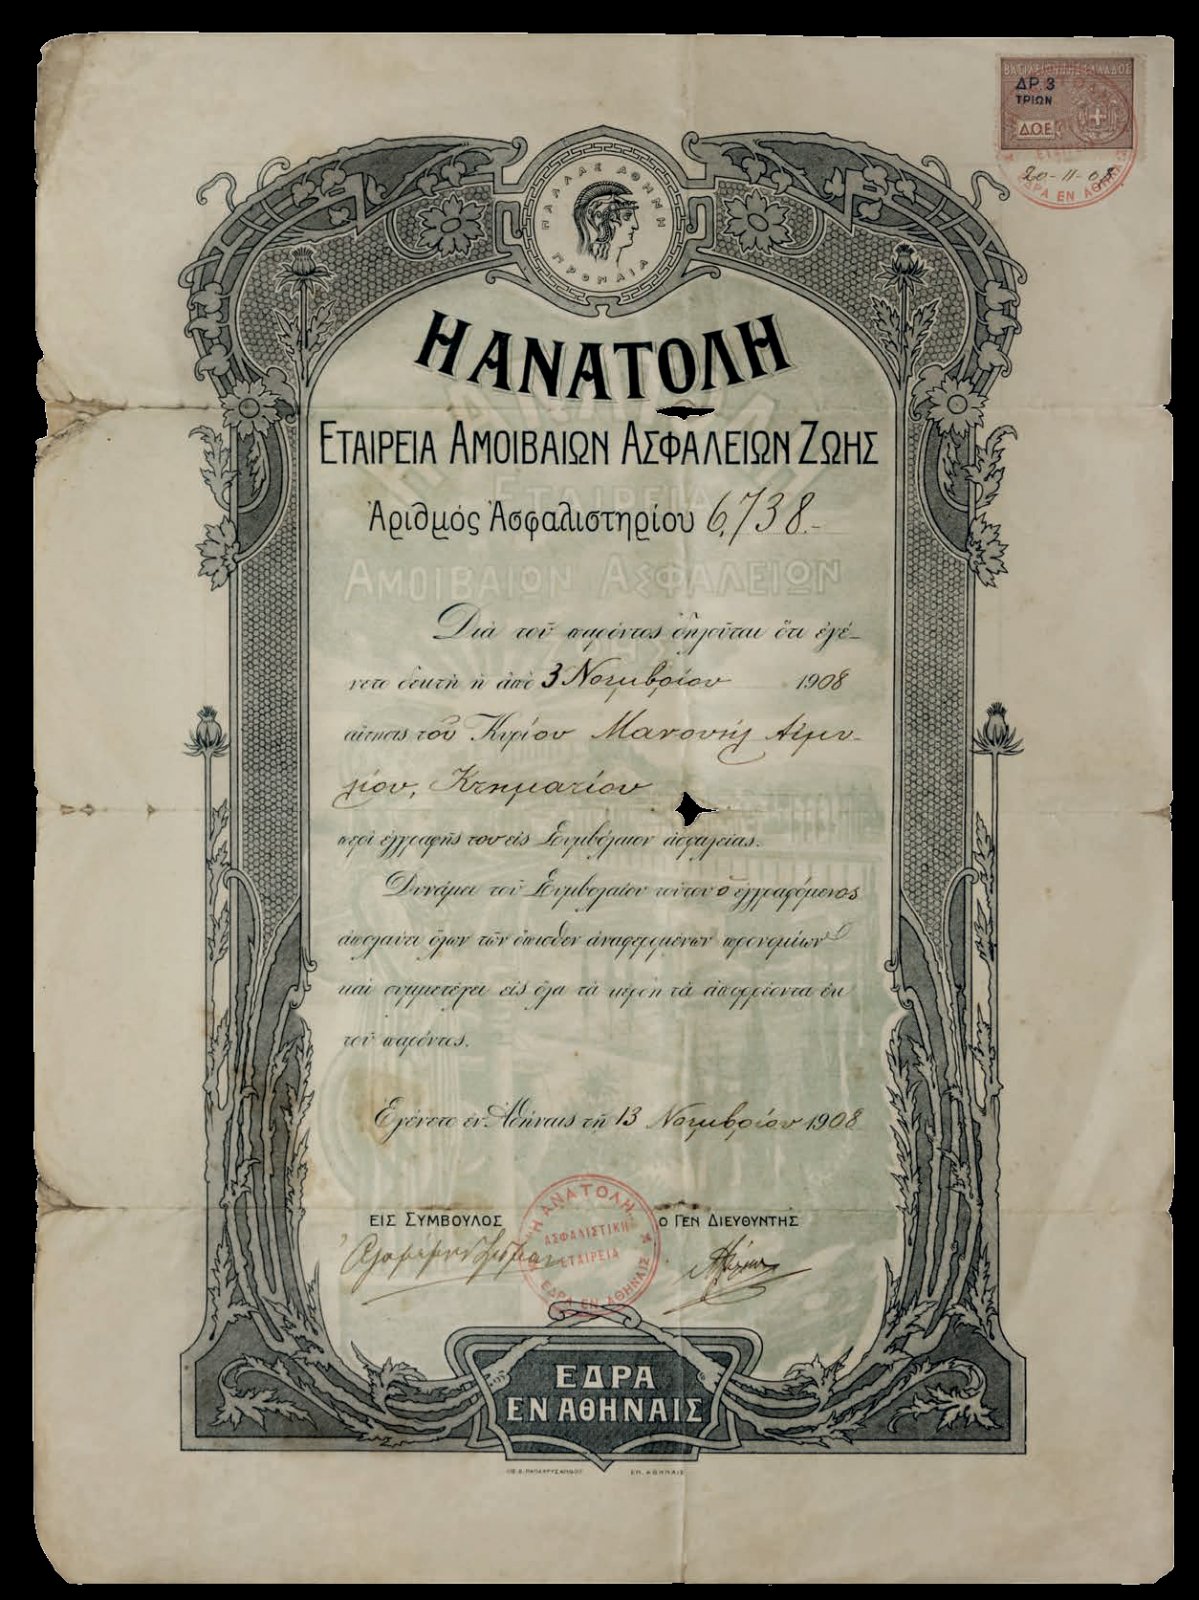 ΒΑΣΙΛΕΙΟΝ ΤΗΣ ΕΛΛΑΔΟΣ
ΔΡ. 3
ΤΡΙΩΝ
Δ.Ο.Ε.
20-11-08
ΕΔΡΑ ΕΝ ΑΘΗΝΑΙΣ
ΠΑΛΛΑΣ ΑΘΗΝΗ
ΠΡΟΝΑΙΑ
Η ΑΝΑΤΟΛΗ
ΕΤΑΙΡΕΙΑ ΑΜΟΙΒΑΙΩΝ ΑΣΦΑΛΕΙΩΝ ΖΩΗΣ
Ἀριθμός Ἀσφαλιστηρίου 6,738.-
ΕΤΑΙΡΕΙΑ
ΑΜΟΙΒΑΙΩΝ ΑΣΦΑΛΕΙΩΝ
Διὰ τοῦ παρόντος δηλοῦται ὅτι ἐγέ-
νετο δεκτὴ ἡ ἀπὸ 3 Νοεμβρίου 1908
αἴτησις τοῦ Κυρίου Μανουὴλ Αἰμι-
λίου, Κτηματίου
περὶ ἐγγραφῆς του εἰς Συμβόλαιον ἀσφαλείας.
Δυνάμει τοῦ Συμβολαίου τούτου ὁ ἐγγραφόμενος
ἀπολαύει ὅλων τῶν ὄπισθεν ἀναφερομένων προνομίων
καὶ συμμετέχει εἰς ὅλα τὰ κέρδη τὰ ἀπορρέοντα ἐκ
τοῦ παρόντος.
Ἐγένετο ἐν Ἀθήναις τῇ 13 Νοεμβρίου 1908
ΕΙΣ ΣΥΜΒΟΥΛΟΣ
Ο ΓΕΝ ΔΙΕΥΘΥΝΤΗΣ
Η ΑΝΑΤΟΛΗ
ΑΣΦΑΛΙΣΤΙΚΗ
ΕΤΑΙΡΕΙΑ
ΕΔΡΑ ΕΝ ΑΘΗΝΑΙΣ
ΕΔΡΑ
ΕΝ ΑΘΗΝΑΙΣ
ΕΝ ΑΘΗΝΑΙΣ